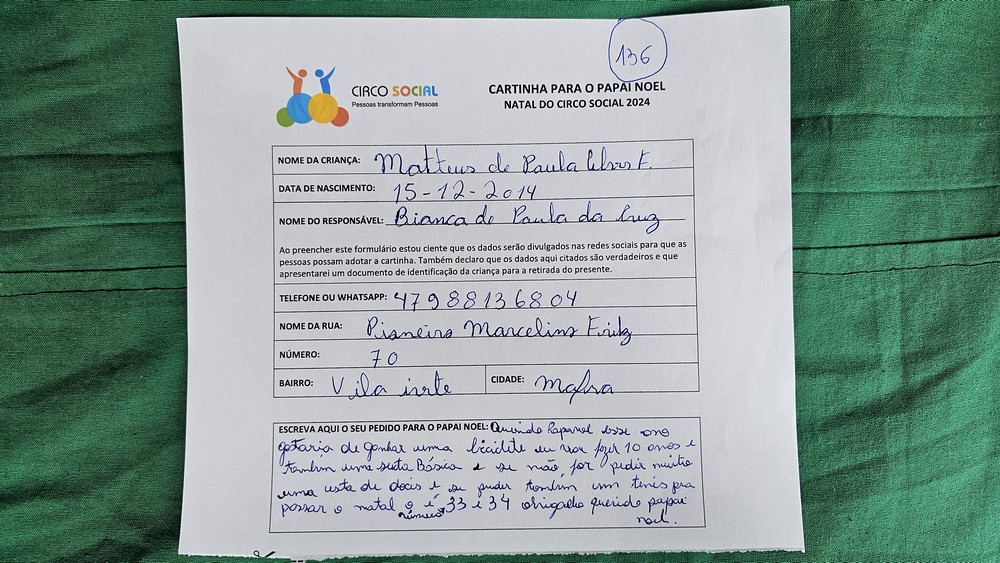 136
CIRCO SOCIAL
Pessoas transformam Pessoas
CARTINHA PARA O PAPAI NOEL
NATAL DO CIRCO SOCIAL 2024
NOME DA CRIANÇA: Matteus de Paula F.
DATA DE NASCIMENTO: 15-12-2014
NOME DO RESPONSÁVEL: Bianca de Paula da Cruz
Ao preencher este formulário estou ciente que os dados serão divulgados nas redes sociais para que as
pessoas possam adotar a cartinha. Também declaro que os dados aqui citados são verdadeiros e que
apresentarei um documento de identificação da criança para a retirada do presente.
TELEFONE OU WHATSAPP: 47988136804
NOME DA RUA: Marcelino
NÚMERO: 70
BAIRRO: Vila
CIDADE: Mafra
ESCREVA AQUI O SEU PEDIDO PARA O PAPAI NOEL: Querido Papanoel esse ano
gostaria de ganhar uma biciclite eu vou fazer 10 anos e
também uma sesta Básica e se não for pedir muito
uma sesta de docis e se puder também um tenis pra
passar o natal o número é 33 e 34 obrigado querido papai
noel.